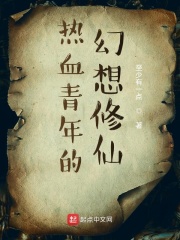 热血青年的
幻想修仙
著
起 起点中文网